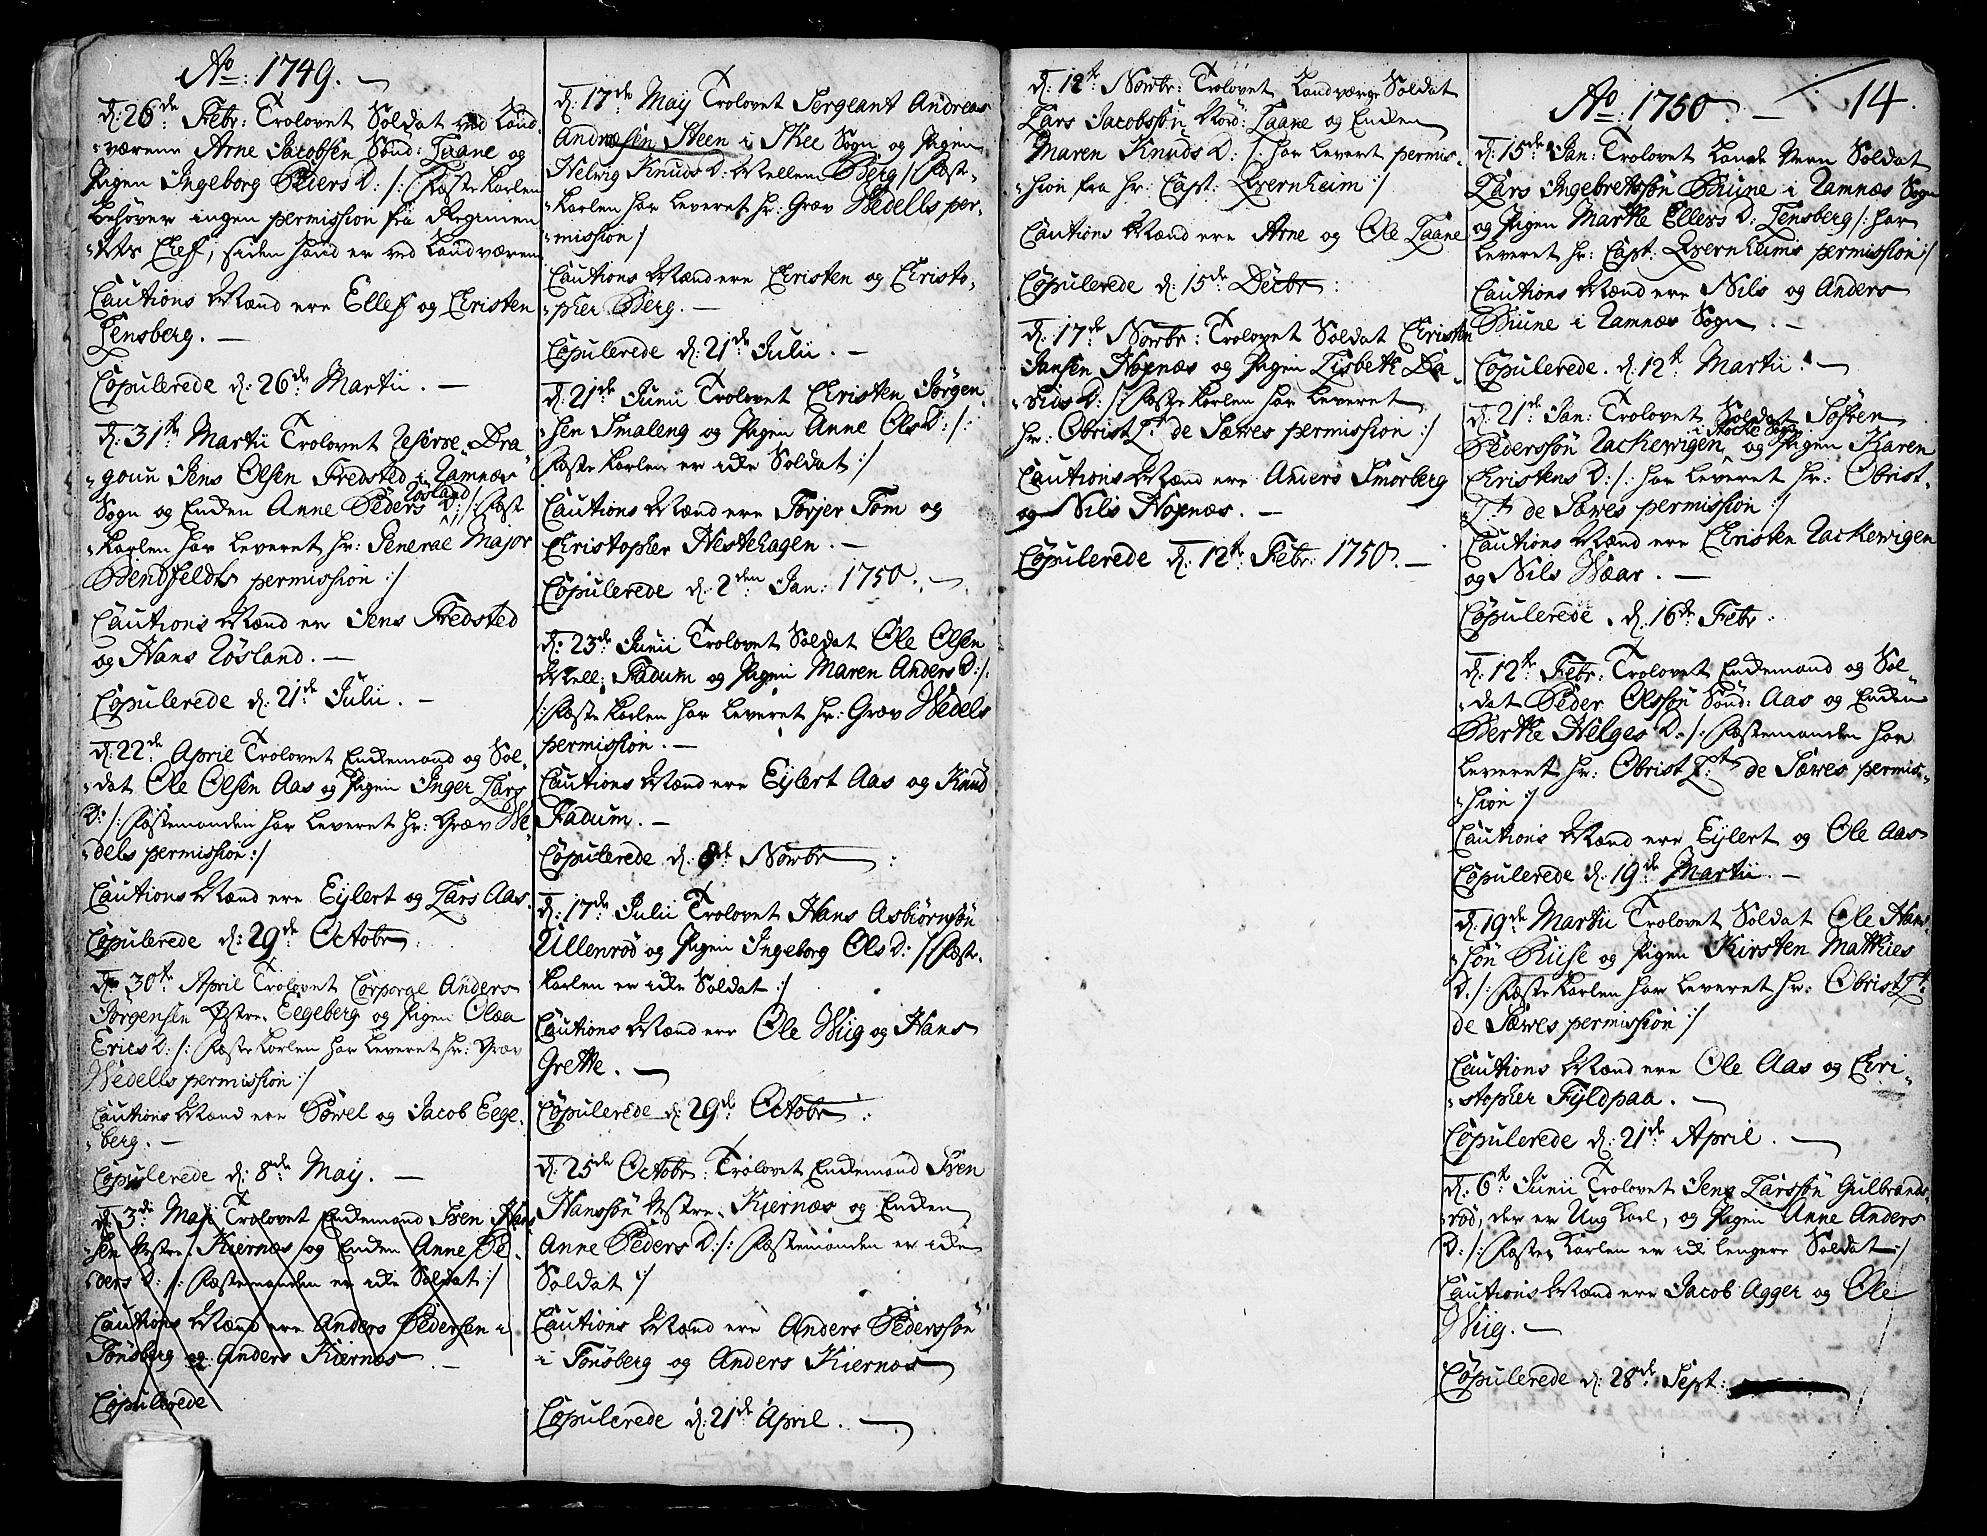 Ao: 1749.
d: 26de Febr: Trolovet Soldat ved Land-
værene Arne Jacobsen Sønd: Taane og
Pigen Ingeborg Peders D: /: Fæste Karlen
behøver ingen permission fra Regimen-
tets Chef, siden hand er ved Landværen
Cautions Mænd ere Ellef og Christen
Tensberg.
Copulerede d: 26de Martii.
d: 31te Martii Trolovet Reserve Dra-
goun Jens Olsen Fredsted i Ramnæs
Sogn og Enken Anne Peders D: Røsland /: Fæst
Karlen har leveret hr: General Major
Bendfeldts permission :/
Cautions Mænd er Jens Fredsted
og Hans Røsland.
Copulerede d: 21de Julii.
d: 22de April Trolovet Enkemand og Sol-
dat Ole Olsen Aas og Pigen Inger Lars
D: /: Fæstemanden har leveret hr: Grev We-
dels permission :/
Cautions Mænd ere Eylert og Lars Aas.
Copulerede d: 29de Octobr:
d: 30te April Trolovet Corporal Anders
Jørgensen Østre Eegeberg og Pigen Olea
Erics D: /: Fæste Karlen har leveret hr: Græv
Wedells permission :/
Cautions Mænd ere Powel og Jacob Eege-
berg.
Copulerede d: 8de May.
d: 3de Maji Trolovet Enkemand Sven Han-
sen Vestre Kiernæs og Enken Anne Pe-
ders D: /: Fæstemanden er ikke Soldat :/
Cautions Mænd ere Anders Pedersen i
Tønsberg og Anders Kiernæs.
Copulerede
d: 17de May Trolovet Sergeant Andreas
Andræsen Steen i Skee Sogn og Pigen
Helvig Knuds D: Mellem Berg /: Fæst-
Karlen har leveret hr: Græv Wedells per-
mission :/
Cautions Mænd ere Christen og Christo-
pher Berg.
Copulerede d: 21de Julii.
d: 21de Junii Trolovet Christen Jørgen-
sen Smaleng og Pigen Anne Ols D: /:
Fæste Karlen er ikke Soldat :/
Cautions Mænd ere Torjer Tom og
Christopher Nestehagen.
Copulerede d: 2den Jan: 1750.
d: 23de Junii Trolovet Soldat Ole Olsen
Mell: Fadum og Pigen Maren Anders D: /:
/: Fæste Karlen har leveret hr: Græv Wedels
permission.
Cautions Mænd ere Eylert Aas og Knud
Fadum.
Copulerede d: 8de Novbr:
d: 17de Julii Trolovet Hans Asbiørnsøn
Ullenrød og Pigen Ingeborg Ols D: /: Fæste-
Karlen er ikke Soldat :/
Cautions Mænd ere Ole Wiig og Hans
Grette.
Copulerede d: 29de Octobr:
d: 25de Octobr: Trolovet Enkemand Sven
Hanssøn Vestre Kiernæs og Enken
Anne Peders D: /: Fæstemanden er ikke
Soldat :/
Cautions Mænd ere Anders Pederssøn
i Tønsberg og Anders Kiernæs
Copulerede d: 21de April.
d: 12te Novbr: Trolovet Landværge Soldat
Lars Jacobssøn Nord: Taane og Enken
Maren Knuds D: /: har leveret permis-
sion fra hr: Capt: Qvernheim :/
Cautions Mænd ere Arne og Ole Taane
Copulerede d: 15de Decbr:
d: 17de Novbr: Trolovet Soldat Christen
Jansen Nopnæs og Pigen Lisbeth Da-
vids D: /: Fæste Karlen har leveret
hr: Obrist Lt: de Sæwes permission :/
Cautions Mænd ere Anders Smørberg
og Nils Nopnæs.
Copulerede d: 12te Febr: 1750.
Ao: 1750.
14.
d: 15de Jan: Trolovet Lande Vern Soldat
Lars Ingebretssøn Biune i Ramnæs Sogn
og Pigen Marthe Ellefs D: Tensberg /: har
leveret hr: Capt: Qvernheims permission :/
Cautions Mænd ere Nils og Anders
Biune i Ramnæs Sogn.
Copulerede d: 12te Martii.
d: 21de Jan: Trolovet Soldat Søfren
Pederssøn Rackevigen i Stocke Sogn og Pigen Karen
Christens D: /: har leveret hr: Obrist-
Lt: de Sæwes permission :/
Cautions Mænd ere Christen Rackevigen
og Nils Wæar.
Copulerede d: 16de Febr:
d: 12te Febr: Trolovet Enkemand og Sol-
dat Peder Olssøn Sønd: Aas og Enken
Berthe Helges D: /: Fæstemanden har
leveret hr: Obrist Lt: de Sæwes permis-
sion :/
Cautions Mænd ere Eylert og Ole Aas
Copulerede d: 19de Martii.
d: 19de Martii Trolovet Soldat Ole Hans-
søn Riise og Pigen Kirsten Matthies
D: /: Fæste Karlen har leveret hr: Obrist Lt:
de Sæwes permission :/
Cautions Mænd ere Ole Aas og Chri-
stopher Fyldpaa.
Copulerede d: 21de April.
d: 6te Junii Trolovet Jens Larssøn Gulbrands-
rød, der er Ung Karl, og Pigen Anne Anders
D: /: Fæste Karlen er ikke lengere Soldat :/
Cautions Mænd ere Jacob Agger og Ole
Wiig.
Copulerede d: 28de Sept: